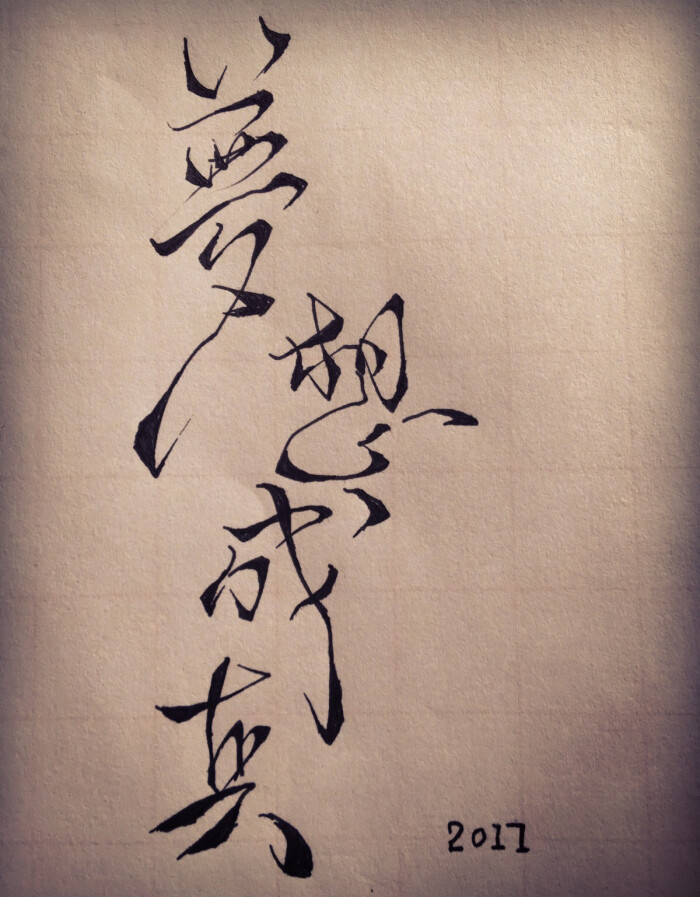 夢想成真
2017